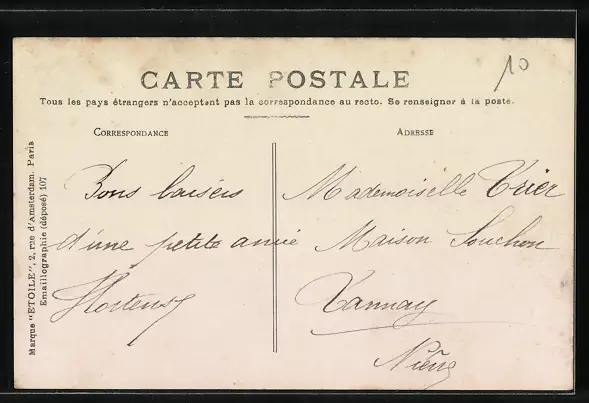 10
CARTE POSTALE
Tous les pays étrangers n'acceptent pas la correspondance au recto. Se renseigner à la poste.
CORRESPONDANCE
Bons baisers
d'une petite amie
Hortense
ADRESSE
Mademoiselle Trier
Maison Souchon
Tannay
Nièvre
Marque "ETOILE", 2, rue d'Amsterdam, Paris
Emaillographie (déposé) 107